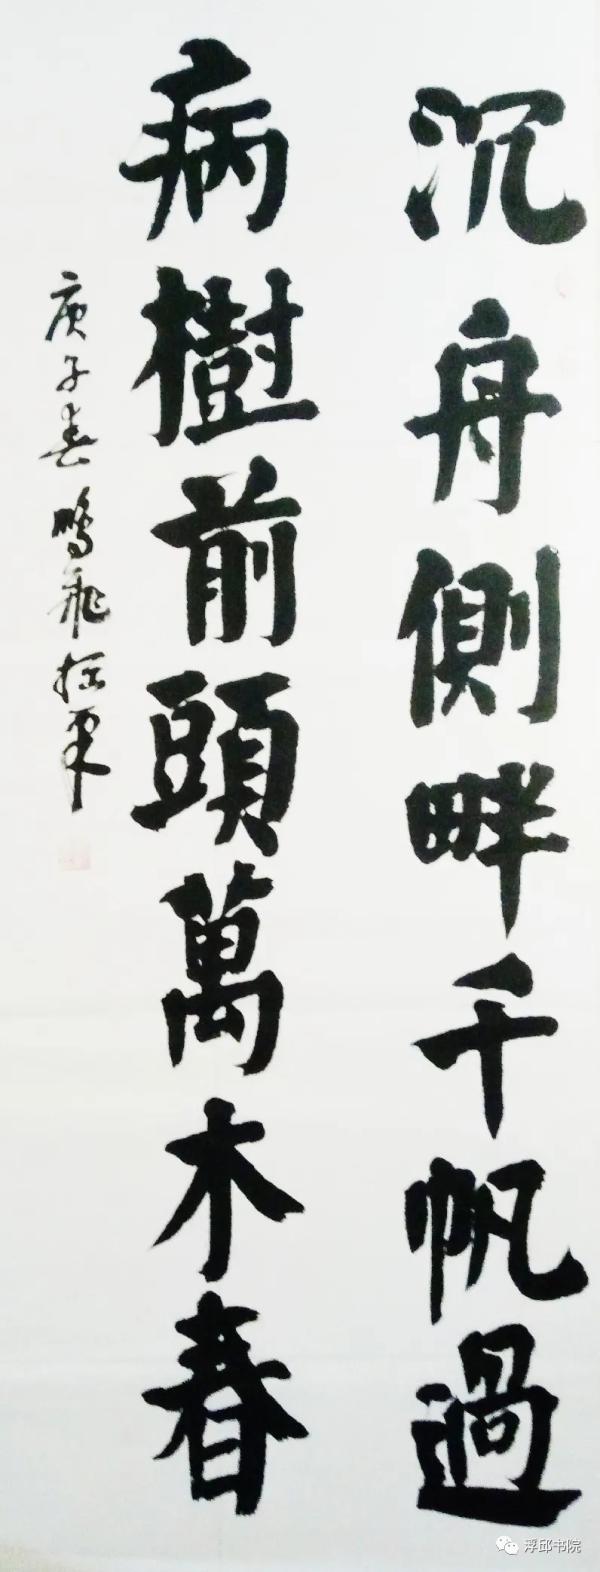 沉舟側畔千帆過
病樹前頭萬木春
庚子春鵬飛
浮邱书院